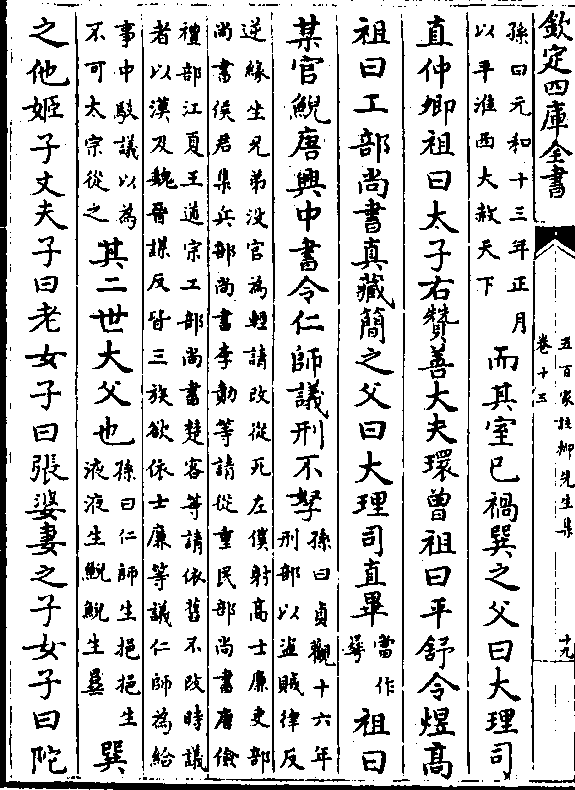 欽定四庫全書
五百家注柳先生集
卷十三
十九
孫曰元和十三年正月
以平淮西大赦天下
而其室已禍巽之父曰大理司
直仲卿祖曰太子右贊善大夫環曾祖曰平舒令煜高
祖曰工部尚書真藏簡之父曰大理司直畢
當作
㢸
祖曰
某官鯢唐興中書令仁師議刑不孥
孫曰貞觀十六年
刑部以盜賊律反
逆緣生兄弟没官為輕請改從死左僕射高士廉吏部
尚書侯君集兵部尚書李勣等請從重民部尚書唐儉
禮部江夏王道宗工部尚書楚客等請依舊不改時議
者以漢及魏晉謀反皆三族欲依士廉等議仁師為給
事中駮議以為
不可太宗從之
其二世大父也
孫曰仁師生挹挹生
液液生鯢鯢生㬪
巽
之他姬子丈夫子曰老女子曰張婆妻之子女子曰陀